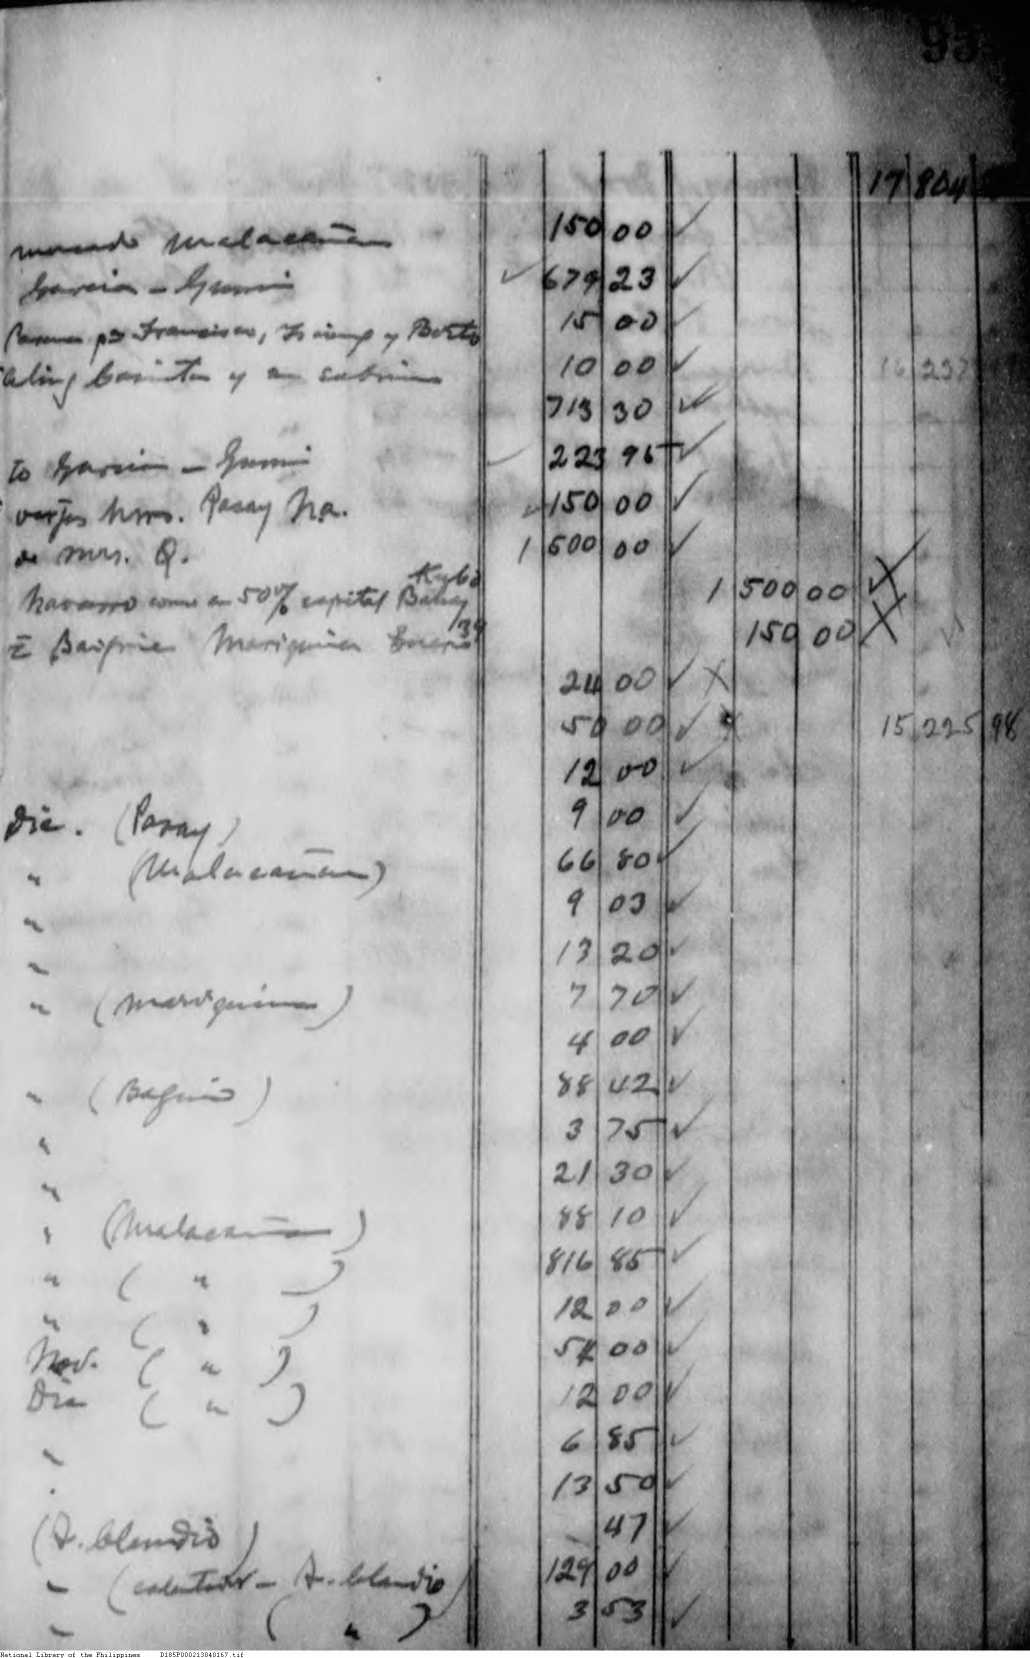 95
17 804
mercado Malacañan 150 00 ✓
Garcia - ✓ 679 23 ✓
Francisco, y Berto 15 00 ✓
Aling y su 10 00 ✓ 16 237
713 30 ✓
to Garcia - 223 95 ✓
Hnos. Pasay 150 00 ✓
de Mrs. Q. 1 500 00 ✓
Navarro como su 50% capital Kubo Bahay 1 500 00 X
Mariquina Enero 34 150 00 X
24 00 ✓ X
50 00 ✓ 15 225 98
12 00 ✓
Dic. (Pasay) 9 00 ✓
" (Malacañan) 66 80 ✓
" 9 03 ✓
" 13 20 ✓
" (Mariquina) 7 70 ✓
4 00 ✓
" (Baguio) 88 42 ✓
" 3 75 ✓
" 21 30 ✓
" (Malacañan) 88 10 ✓
" ( " ) 816 85 ✓
" ( " ) 12 00 ✓
Nov. ( " ) 54 00 ✓
Dic ( " ) 12 00 ✓
" 6 85 ✓
13 50 ✓
(A. Claudio) 47 ✓
" ( - A. Claudio) 129 00 ✓
" ( " ) 3 53 ✓
National Library of the Philippines D185P000213040167.tif